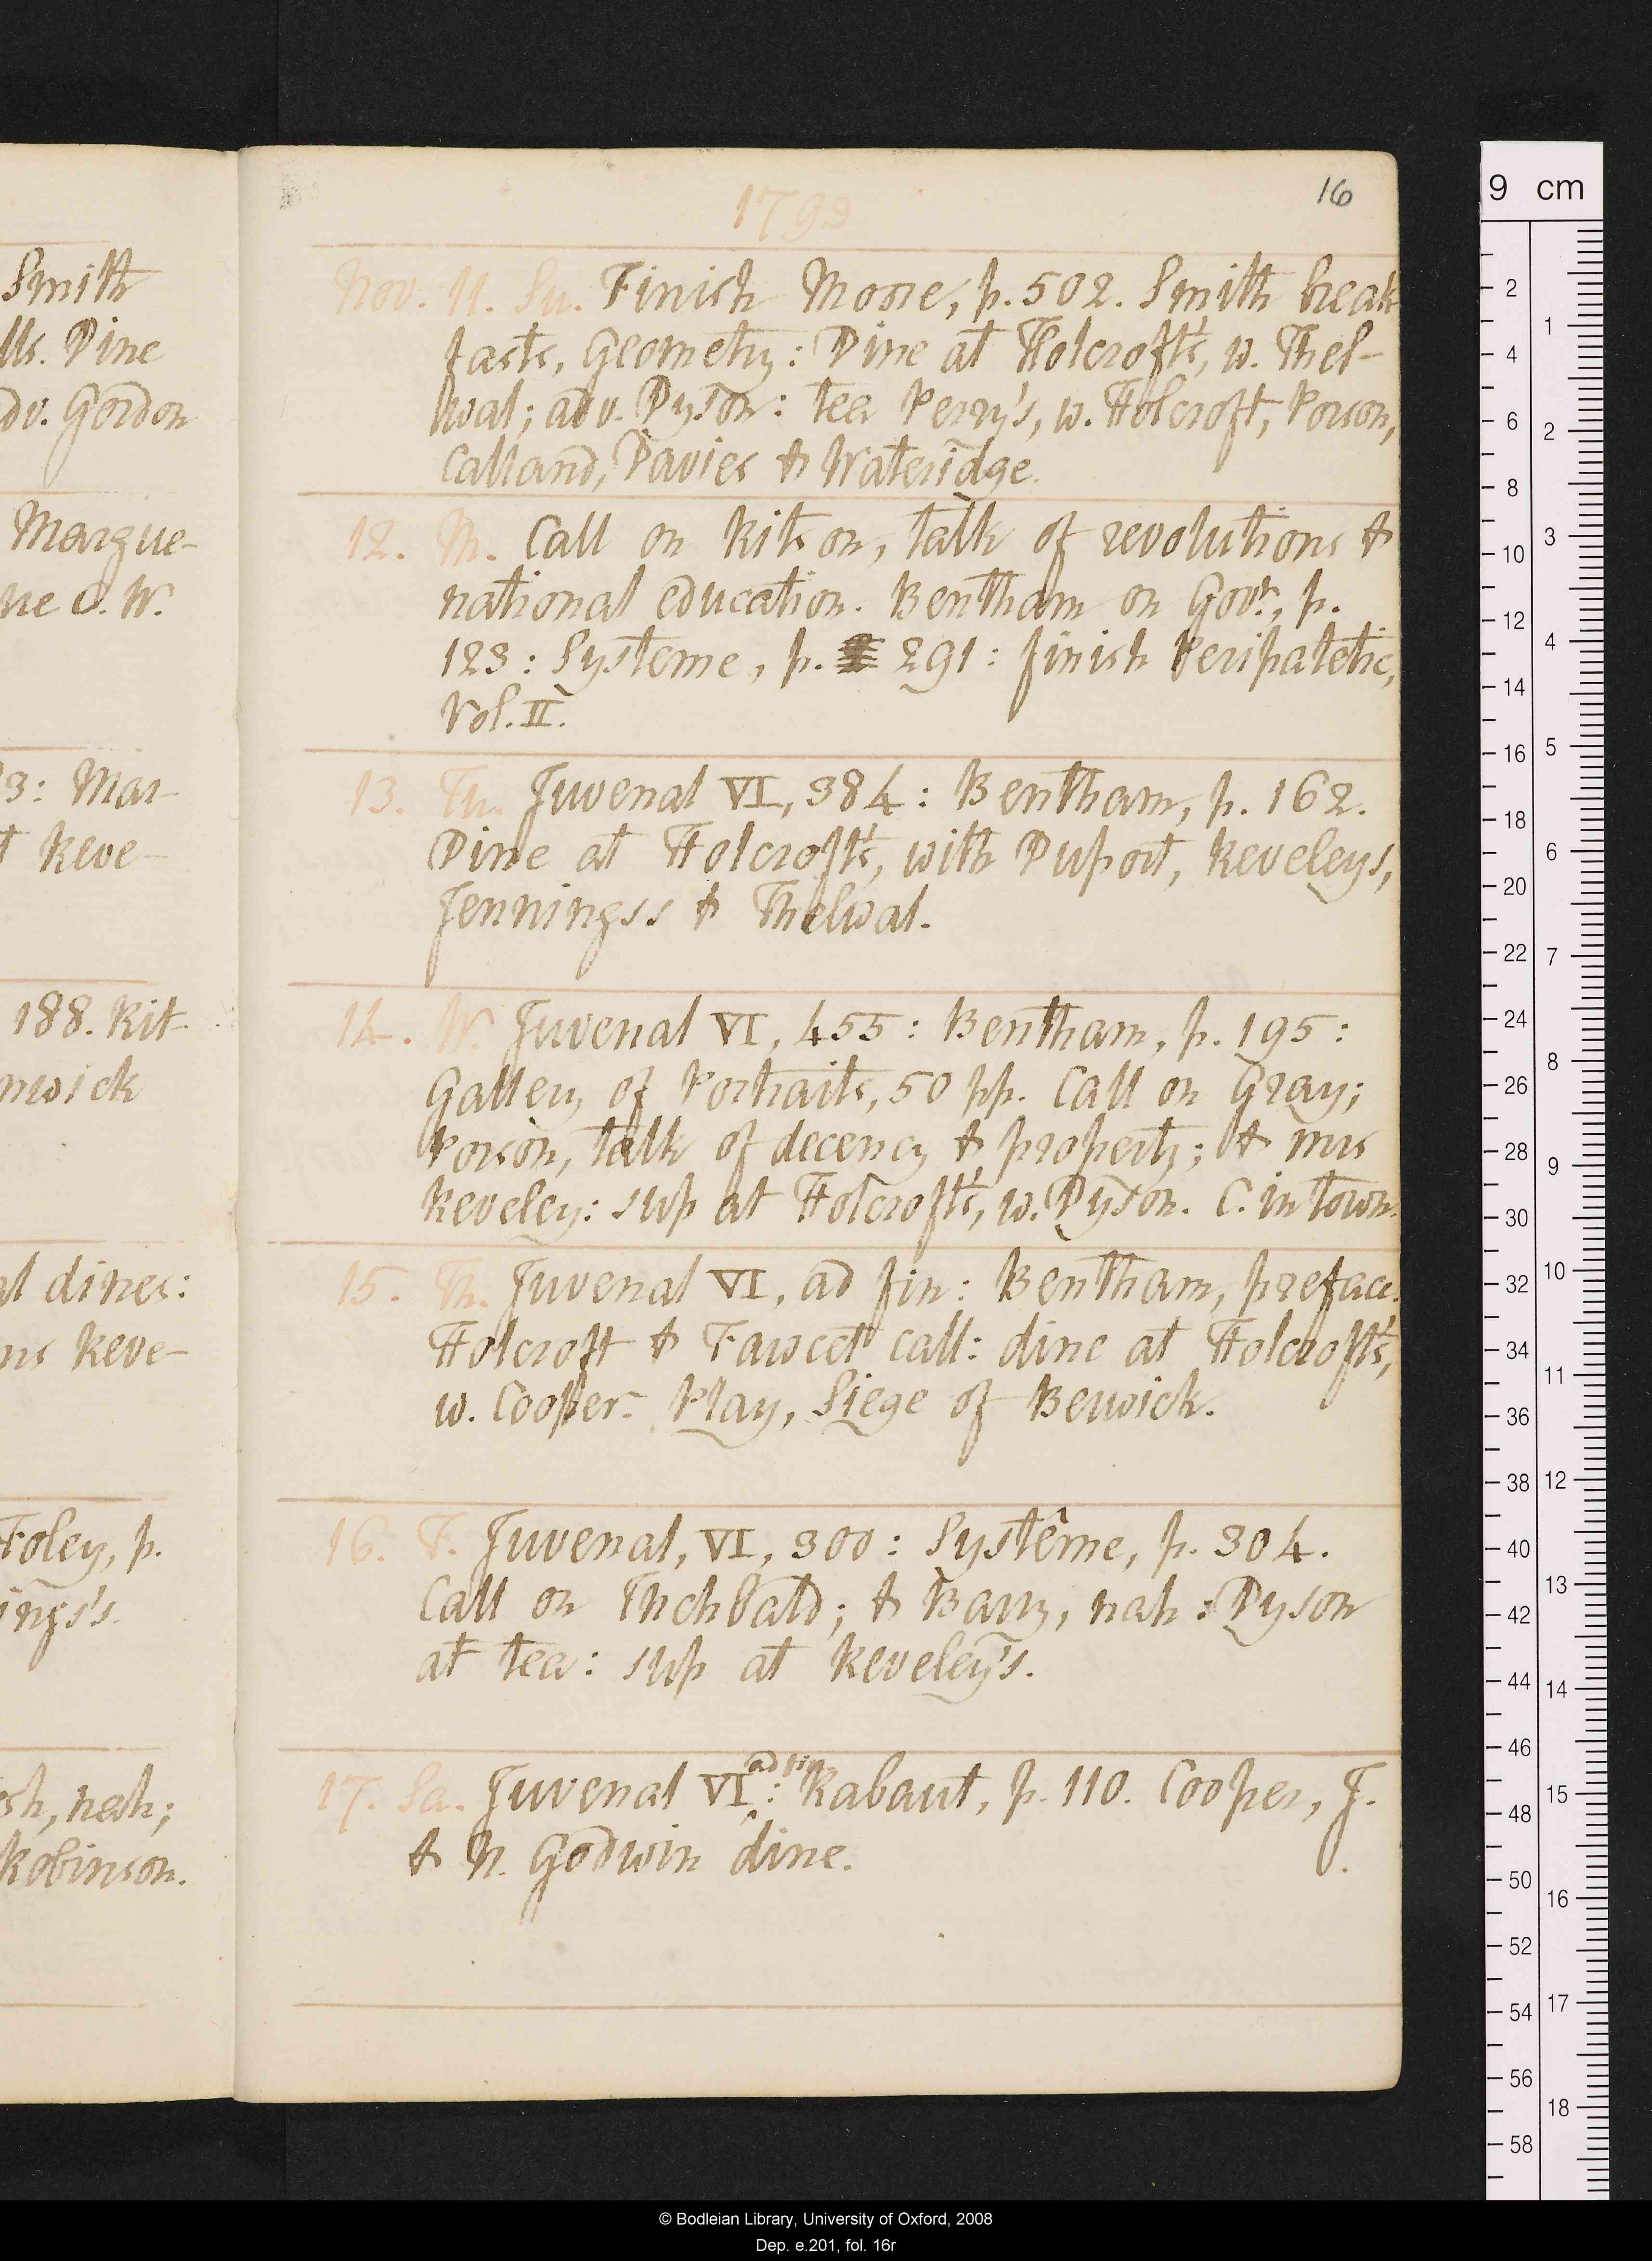 Smith
lls. Dine
dv. Gordon
Margue-
ne C. W.
3: Mar-
t Reve-
188. Rit-
nwick
al dines:
ns Reve-
Foley, p.
ings's.
sh, nah;
Robinson.
16
1793
Nov. 11. Su. Finish More, p. 502. Smith break
fasts, Geometry: Dine at Holcroft's, w. Thel-
wal; adv. Dyson: tea Perry's, w. Holcroft, Porson,
Calland, Davies & Wateridge.
12. M. Call on Ritson, talk of revolutions &
national education. Bentham on Govt., p.
123: Systeme, p. 291: finish Peripatetic,
Vol. II.
13. Tu. Juvenal VI, 384: Bentham, p. 162.
Dine at Holcroft's, with Duport, Reveleys,
Jenningss & Thelwal.
14. W. Juvenal VI, 455: Bentham, p. 195:
Gallery of Portraits, 50 pp. Call on Gray;
Porson, talk of decency & property; & mrs
Reveley: sup at Holcroft's, w. Dyson. C. in town.
15. Th. Juvenal VI, ad fin: Bentham, preface.
Holcroft & Fawcet call: dine at Holcroft's,
w. Cooper. Play, Siege of Berwick.
16. F. Juvenal, VI, 300: Système, p. 304.
Call on Inchbald; & Barry, nah: Dyson
at tea: sup at Reveley's.
17. Sa. Juvenal VI ad fin: Rabaut, p. 110. Cooper, J.
& N. Godwin dine.
9 cm
2
4
6
8
10
12
14
16
18
20
22
24
26
28
30
32
34
36
38
40
42
44
46
48
50
52
54
56
58
1
2
3
4
5
6
7
8
9
10
11
12
13
14
15
16
17
18
© Bodleian Library, University of Oxford, 2008
Dep. e.201, fol. 16r